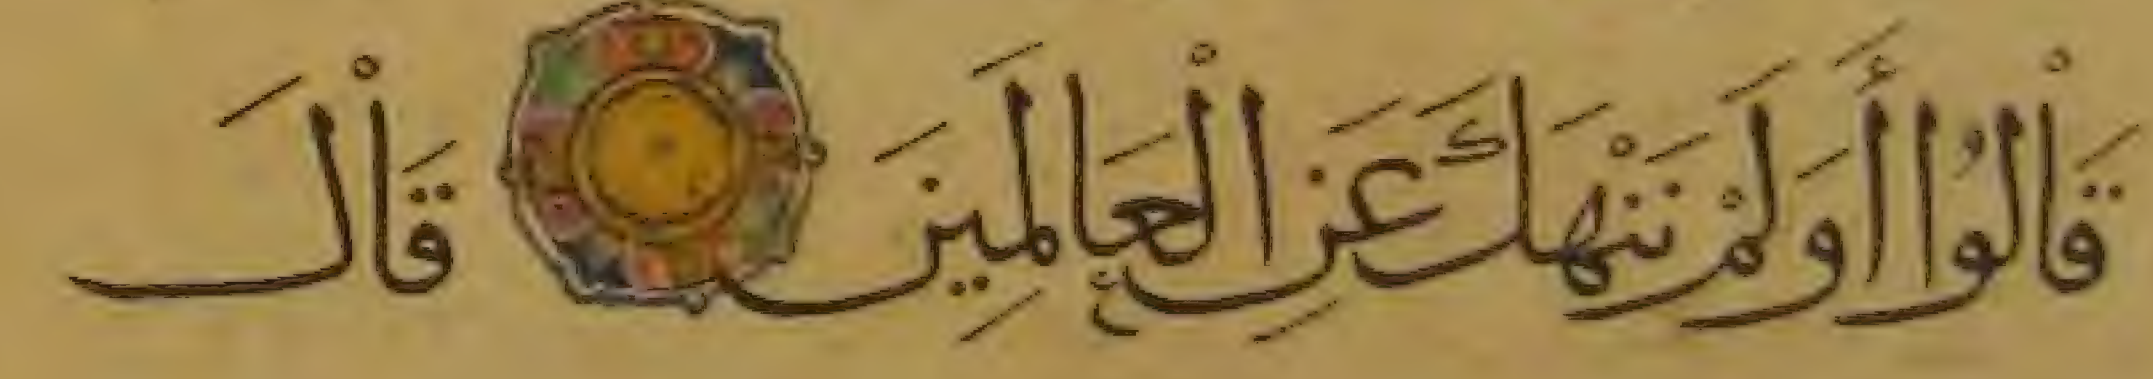 قَاْلُوْا أَوَلَمْ نَنْهَكَ عَنِ الْعَالَمِيْنَ قَاْلَ